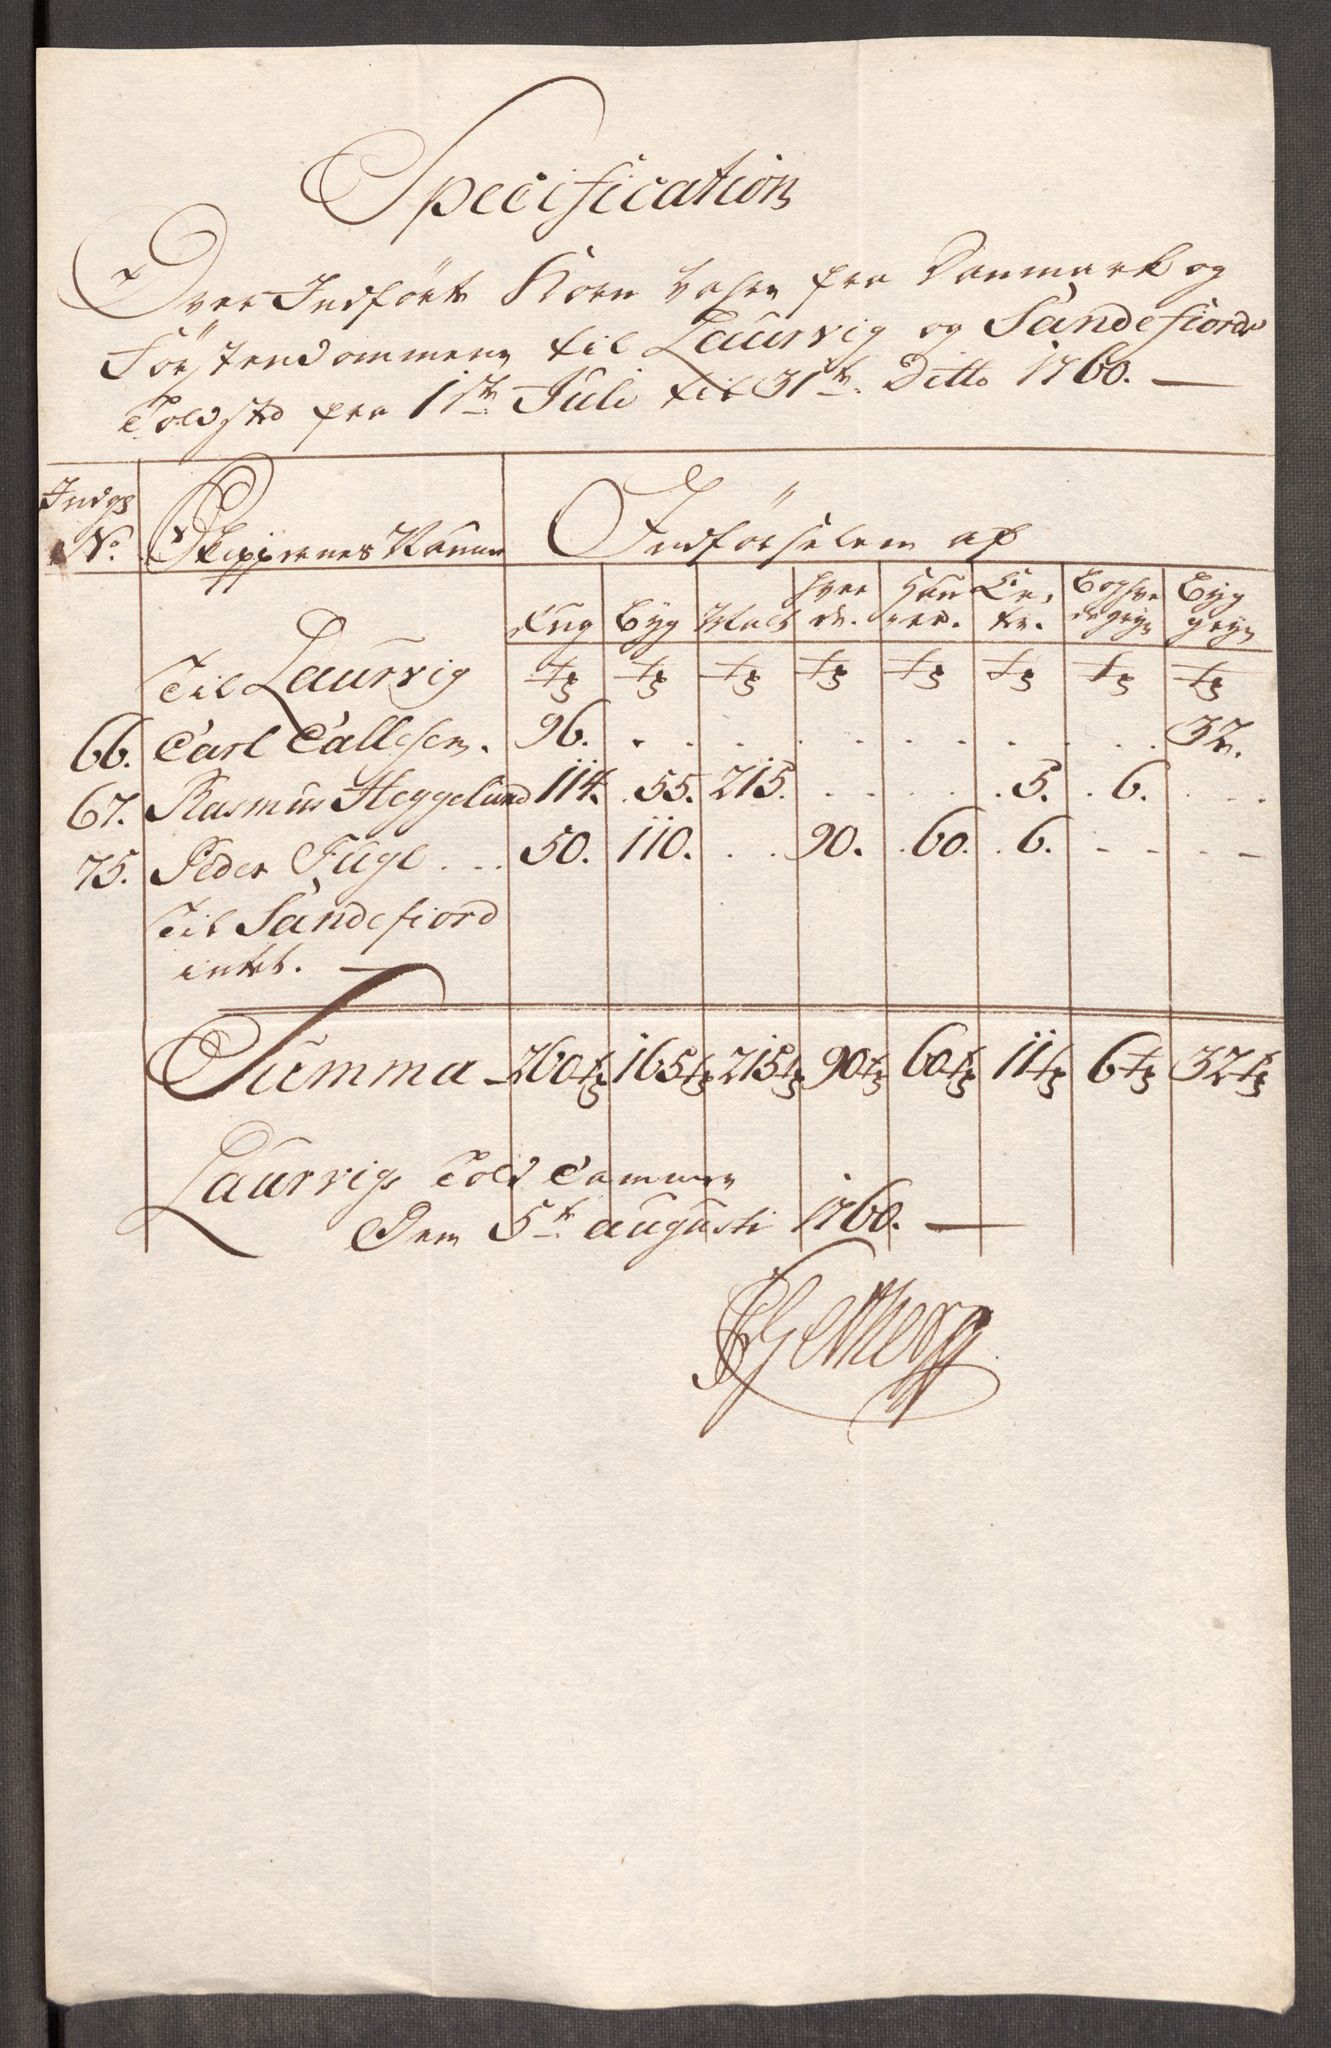 Specification
Over Indförte Korn Vahre fra Danmark og
Förstendommene til Laurvig og Sandefiords
Toldsted fra 1ste Juli til 31te Ditto 1760. —
Indgs No. Skippernes Nafne Indförselen af
Rug Byg Malt Hvede. Haure. Erter. Boghvedegryn Byggryn
Til Laurvig tr tr tr tr tr tr tr tr
66. Carl Callesen. 96. . . . . . . . . . . . 32.
67. Rasmus Heggelund 114. . 55. 215. . . . . . 5. . 6. . . .
75. Peder Fugl . . . 50. 110. . . 90. . 60. . 6. - - - -
Til Sandefiord
intet. —
Summa 260 tr 165 tr 215 tr 90 tr 60 tr 11 tr 6 tr 32 tr
Laurvigs Told Cammer
Den 5te augusti 1760. —